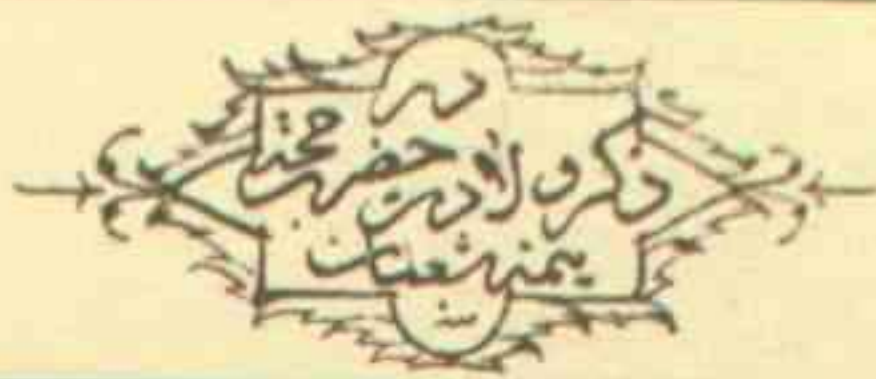 در
ذکر ولادت حضرت حجت
بنیمه شعبان